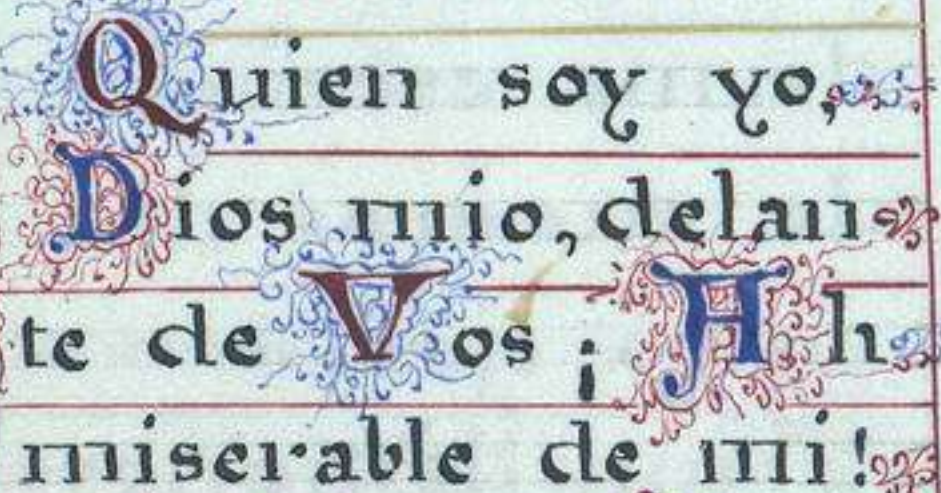 Quien soy yo,
Dios mio, delan
te de Vos ¡Ah
miserable de mi!